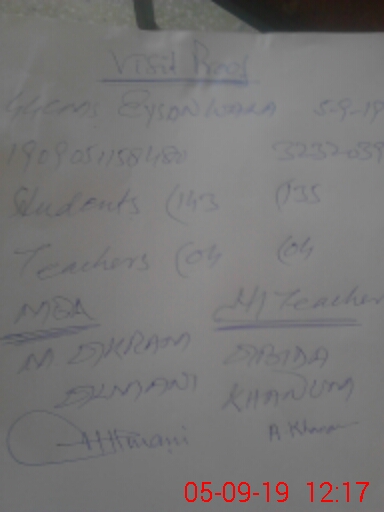 Visit Proof
GGCMS EYSONWARA 5-9-19
1909051158480 3232-039
Students (143 (135
Teachers (04 (04
MEA H/Teacher
M. IKRAM ABIDA
KHANUM
A Khanum
05-09-19 12:17